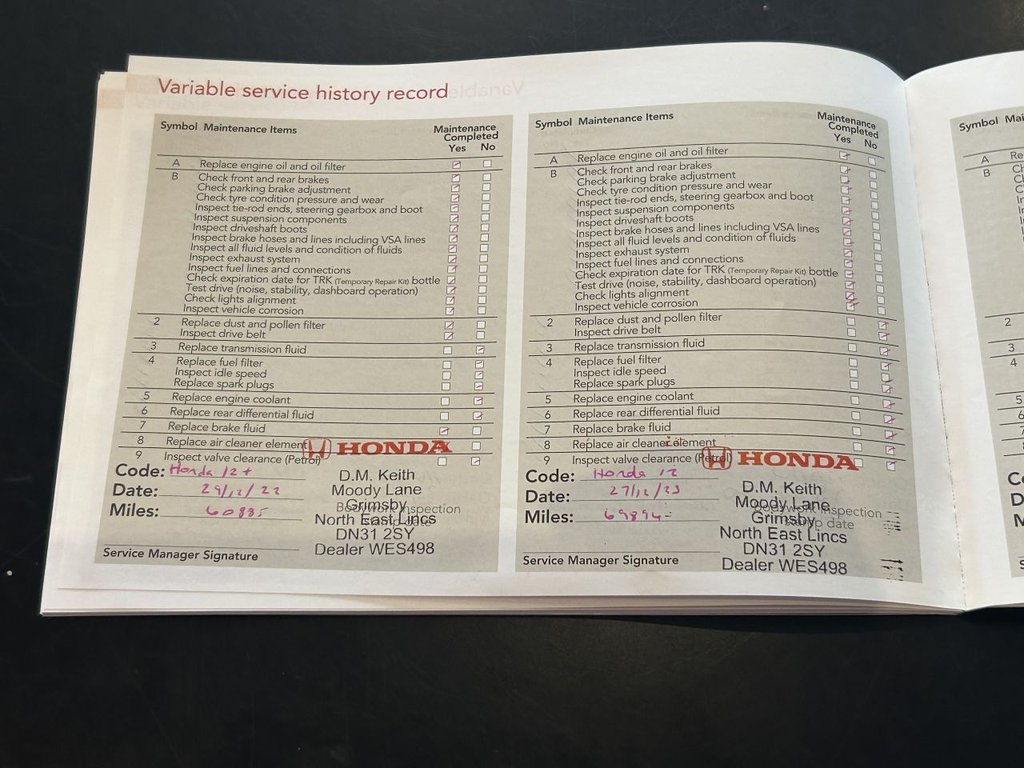 Variable service history record
Symbol Maintenance Items
Maintenance
Completed
Yes No
A Replace engine oil and oil filter
B Check front and rear brakes
Check parking brake adjustment
Check tyre condition pressure and wear
Inspect tie-rod ends, steering gearbox and boot
Inspect suspension components
Inspect driveshaft boots
Inspect brake hoses and lines including VSA lines
Inspect all fluid levels and condition of fluids
Inspect exhaust system
Inspect fuel lines and connections
Check expiration date for TRK (Temporary Repair Kit) bottle
Test drive (noise, stability, dashboard operation)
Check lights alignment
Inspect vehicle corrosion
2 Replace dust and pollen filter
Inspect drive belt
3 Replace transmission fluid
4 Replace fuel filter
Inspect idle speed
Replace spark plugs
5 Replace engine coolant
6 Replace rear differential fluid
7 Replace brake fluid
8 Replace air cleaner element
9 Inspect valve clearance (Petrol)
HONDA
Code: Honda 12+
Date: 29/12/22
Miles: 60885
D.M. Keith
Moody Lane
Grimsby
North East Lincs
DN31 2SY
Dealer WES498
Service Manager Signature
Symbol Maintenance Items
Maintenance
Completed
Yes No
A Replace engine oil and oil filter
B Check front and rear brakes
Check parking brake adjustment
Check tyre condition pressure and wear
Inspect tie-rod ends, steering gearbox and boot
Inspect suspension components
Inspect driveshaft boots
Inspect brake hoses and lines including VSA lines
Inspect all fluid levels and condition of fluids
Inspect exhaust system
Inspect fuel lines and connections
Check expiration date for TRK (Temporary Repair Kit) bottle
Test drive (noise, stability, dashboard operation)
Check lights alignment
Inspect vehicle corrosion
2 Replace dust and pollen filter
Inspect drive belt
3 Replace transmission fluid
4 Replace fuel filter
Inspect idle speed
Replace spark plugs
5 Replace engine coolant
6 Replace rear differential fluid
7 Replace brake fluid
8 Replace air cleaner element
9 Inspect valve clearance (Petrol)
HONDA
Code: Honda 12
Date: 27/12/23
Miles: 69894
D.M. Keith
Moody Lane
Grimsby
North East Lincs
DN31 2SY
Dealer WES498
Service Manager Signature
Symbol
A
B
2
3
4
5
6
7
8
9